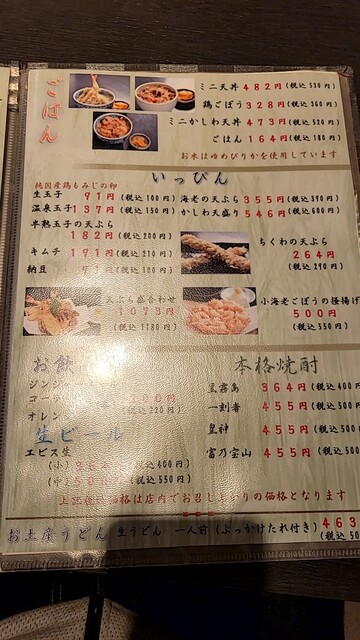 ごはん
ミニ天丼 482円(税込 530円)
鶏ごぼう 328円(税込 360円)
ミニかしわ天丼 473円(税込 520円)
ごはん 164円(税込 180円)
お米はゆめぴりかを使用しています
いっぴん
純国産鶏もみじの卵
生玉子 91円(税込 100円)
温泉玉子 137円(税込 150円)
半熟玉子の天ぷら
182円(税込 200円)
キムチ 191円(税込 210円)
納豆 91円(税込 100円)
海老の天ぷら 355円(税込 390円)
かしわ天盛り 546円(税込 600円)
ちくわの天ぷら
264円
(税込 290円)
天ぷら盛合わせ
1073円
(税込 1180円)
小海老とごぼうの掻揚げ
500円
(税込 550円)
お飲
ジンジャー
コー
オレン
(税込 220円)
生ビール
エビス生
(小) 364円(税込 400円)
(中) 500円(税込 550円)
本格焼酎
黒霧島 364円(税込 400
一刻者 455円(税込 500
皇神 455円(税込 500
富乃宝山 455円(税込 500
上記税込価格は店内でお召し上がりの価格となります
お土産うどん 生うどん 一人前(ぶっかけたれ付き) 463
(税込 50